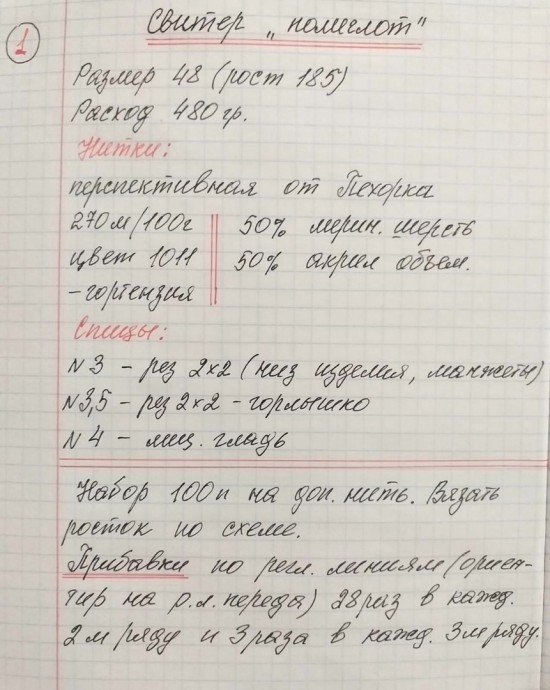 1
Свитер „полислот"
Размер 48 (рост 185)
Расход 480гр.
Нитки:
перспективная от Пехорка
270м/100г 50% мерин. шерсть
цвет 1011 50% акрил объем.
-гортензия
Спицы:
N3 - рез 2x2 (низ изделия, манжеты)
N3,5 - рез 2x2 - горлышко
N4 - лиц. гладь
Набор 100п на доп. нить. Вязать
росток по схеме.
Прибавки по регл. линиям (ориен-
тир на р.л. переда) 28 раз в кажд.
2м ряду и 3 раза в кажд. 3м ряду.